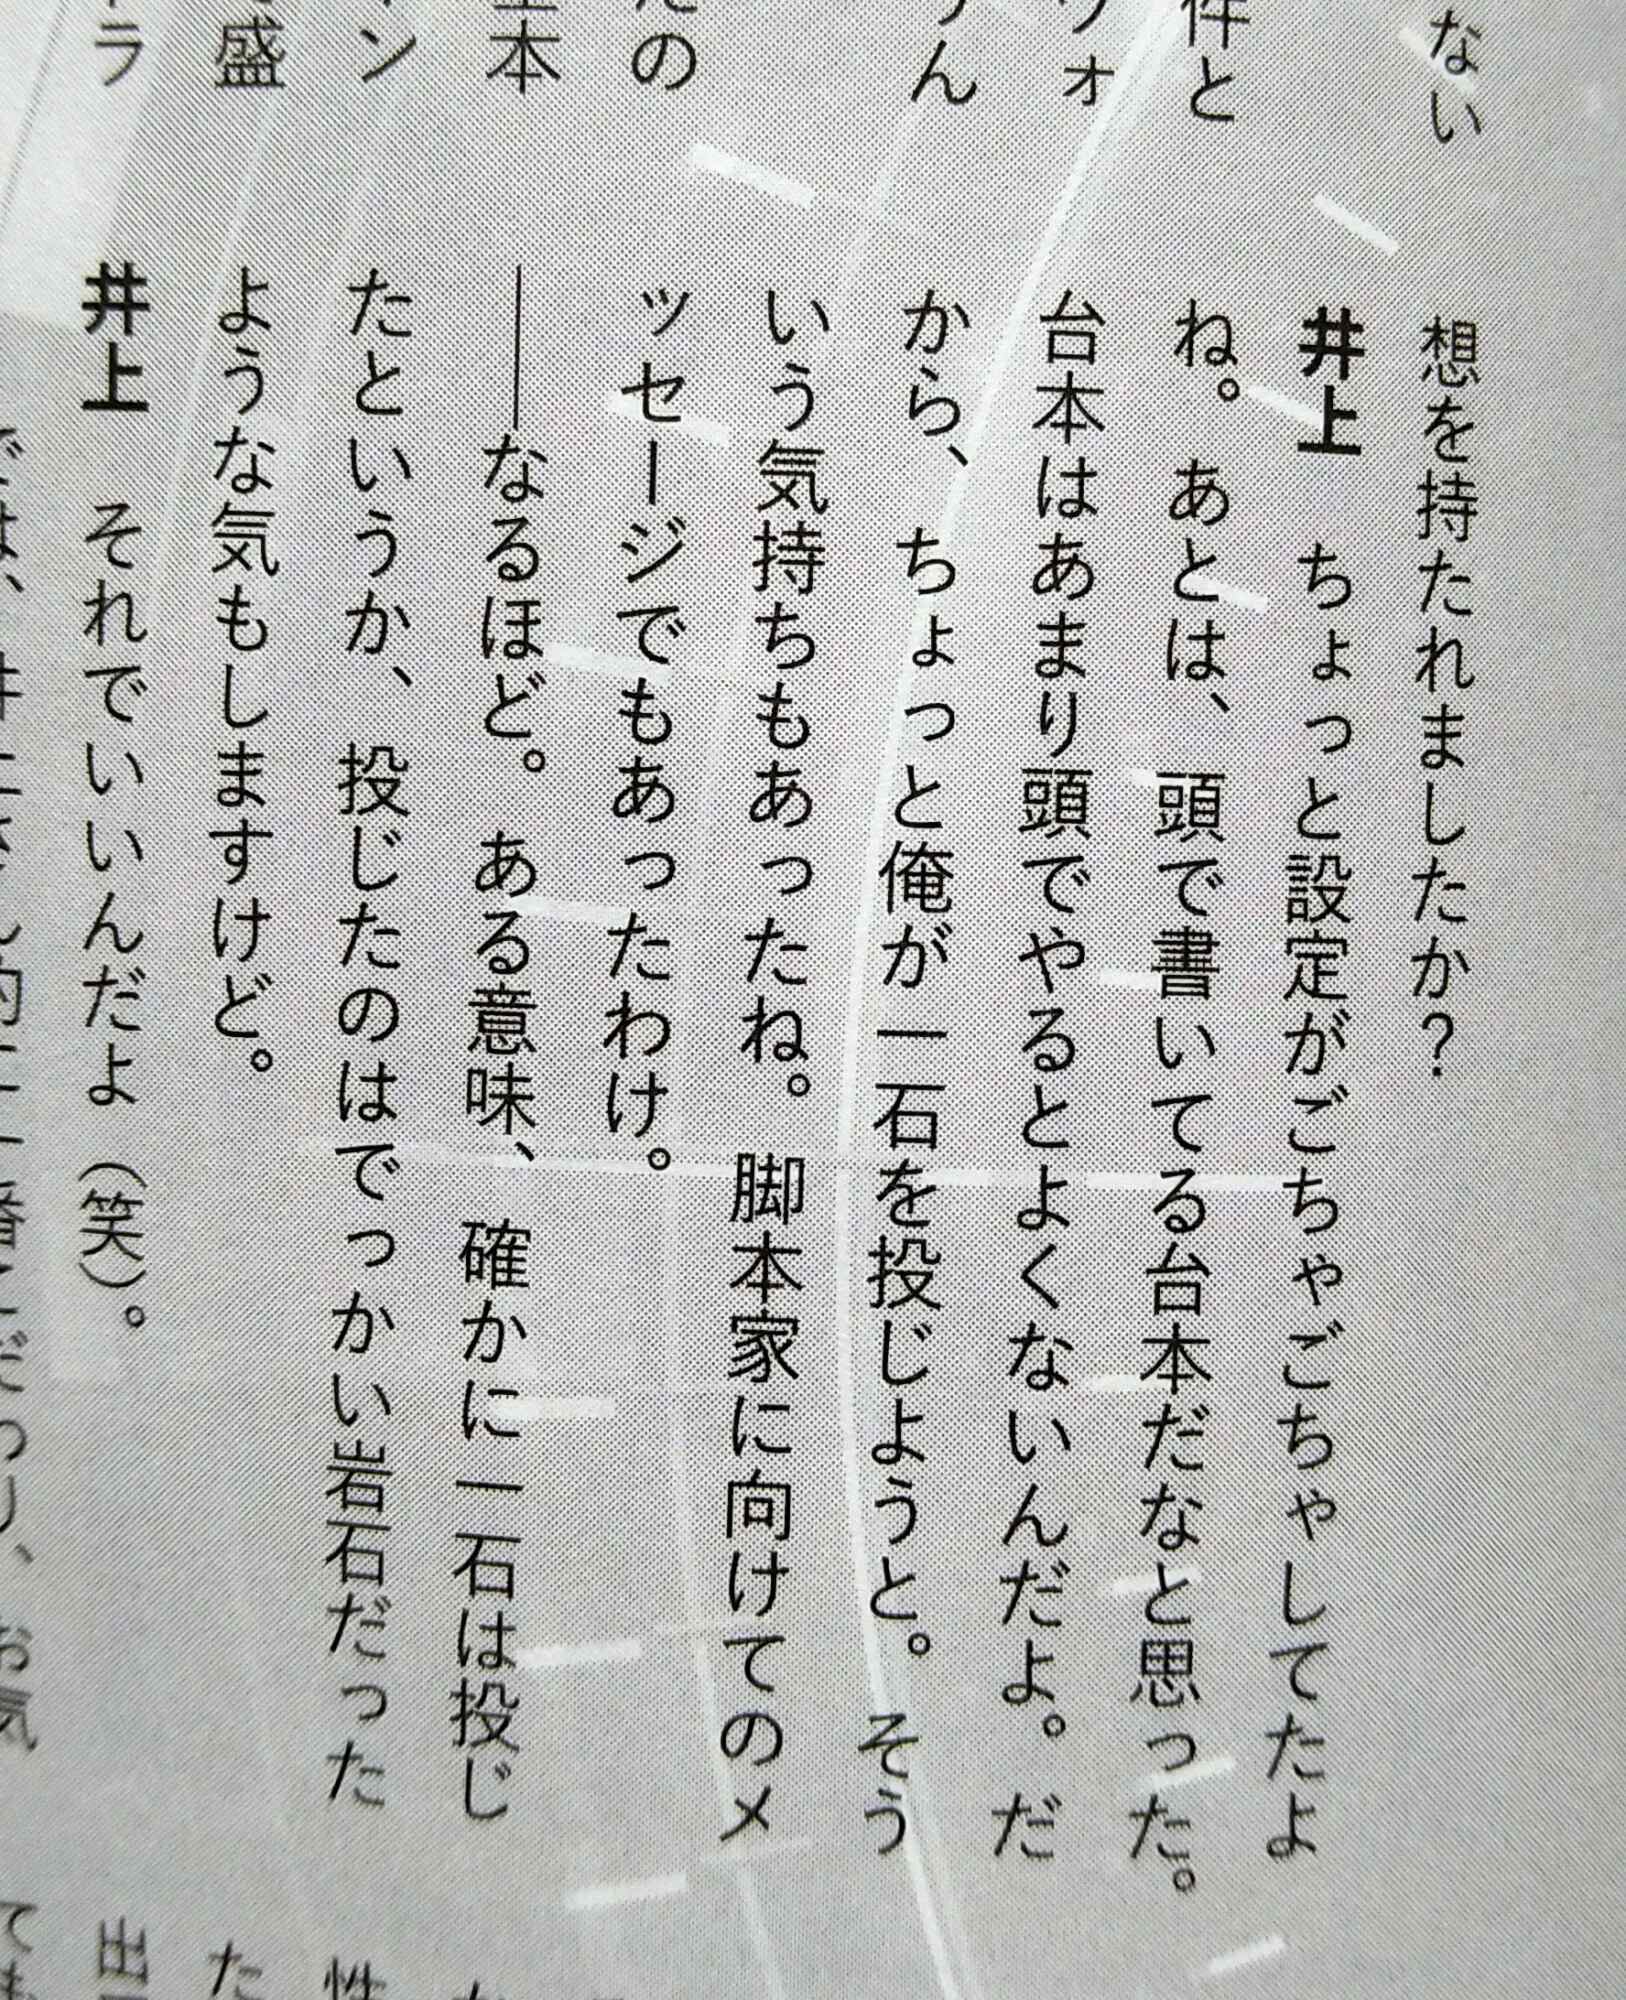 ない
件と
フォ
うん
たの
本
イン
盛
トラ
想を持たれましたか？
井上　ちょっと設定がごちゃごちゃしてたよ
ね。あとは、頭で書いてる台本だなと思った。
台本はあまり頭でやるとよくないんだよ。だ
から、ちょっと俺が一石を投じようと。そう
いう気持ちもあったね。脚本家に向けてのメ
ッセージでもあったわけ。
――なるほど。ある意味、確かに一石は投じ
たというか、投じたのはでっかい岩石だった
ような気もしますけど。
井上　それでいいんだよ（笑）。
お気
性
た
出